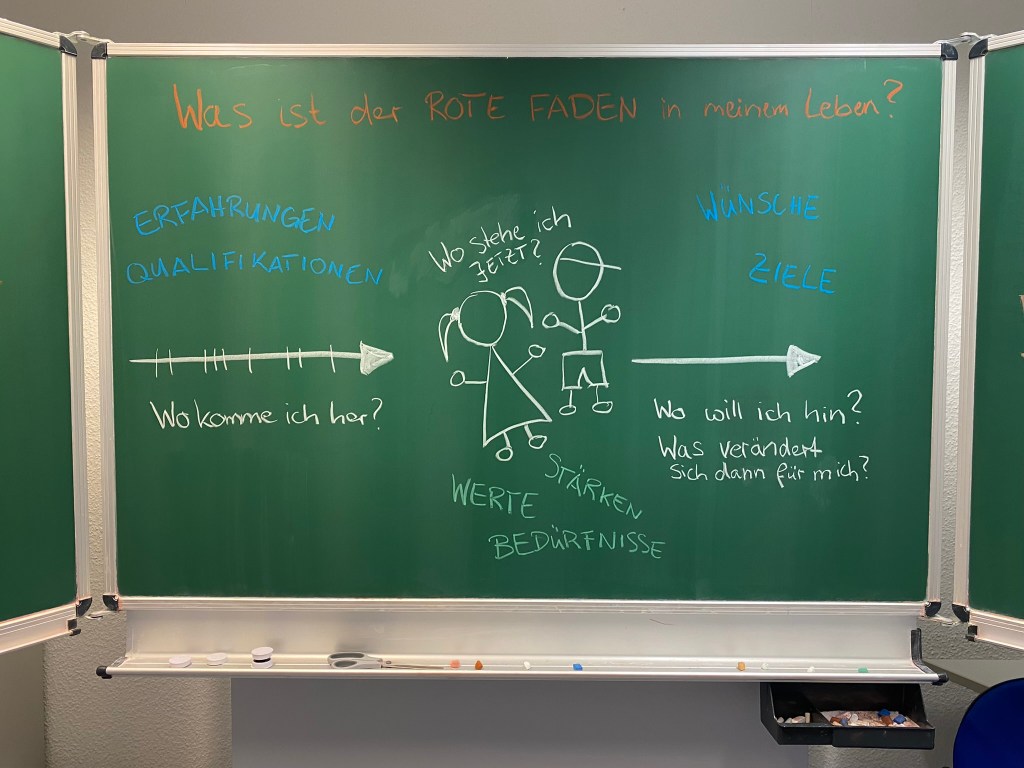 Was ist der ROTE FADEN in meinem Leben?
ERFAHRUNGEN
QUALIFIKATIONEN
Wo komme ich her?
Wo stehe ich
JETZT?
WERTE
STÄRKEN
BEDÜRFNISSE
WÜNSCHE
ZIELE
Wo will ich hin?
Was verändert
sich dann für mich?